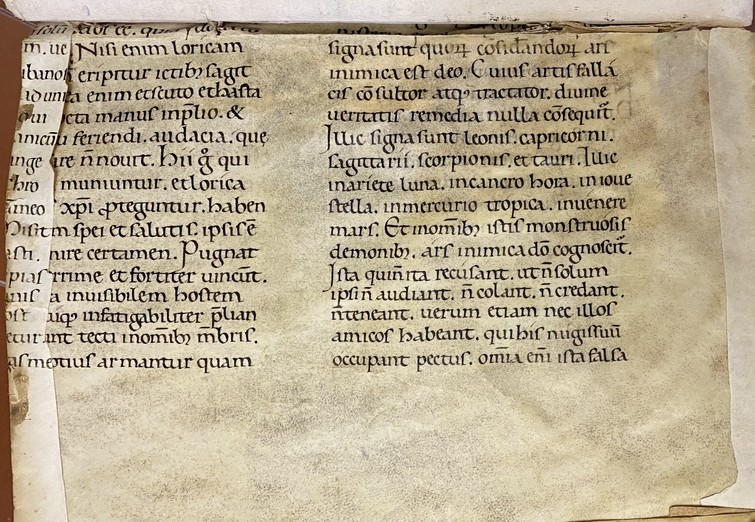 Nisi enim loricam
eripitur ictibꝫ sagit
enim et scuto et hasta
manus in p̄lio. &
feriendi. audacia. que
n̄ nouit. Hii g̊ qui
muniuntur. et lorica
xp̄i ꝓteguntur. haben
spei et salutis. ipsis ē
nire certamen. Pugnat
rrime et fortiter uincūt.
a inuisibilem hostem
atqꝫ infatigabiliter p̄lian
tecti in om̄ibꝫ m̄bris.
melius armantur quam
signa sunt quoꝝ cōsidandoꝝ ars
inimica est deo. Cuius artis falla
cis cōsultor atqꝫ tractator. diuine
ueritatis remedia nulla cōsequit᷑.
Illic signa sunt leonis. capricorni.
sagittarii. scorpionis. et tauri. Illic
in ariete luna. in cancro hora. in ioue
stella. in mercurio tropica. in uenere
mars. Et in om̄ibꝫ istis monstruosis
demonibꝫ. ars inimica dō cognoscit᷑.
Ista qui n̄ ita recusant. ut n̄ solum
ipsi n̄ audiant. n̄ colant. n̄ credant.
n̄ teneant. uerum etiam nec illos
amicos habeant. qui his nugis suū
occupant pectus. om̄ia eni ista falsa